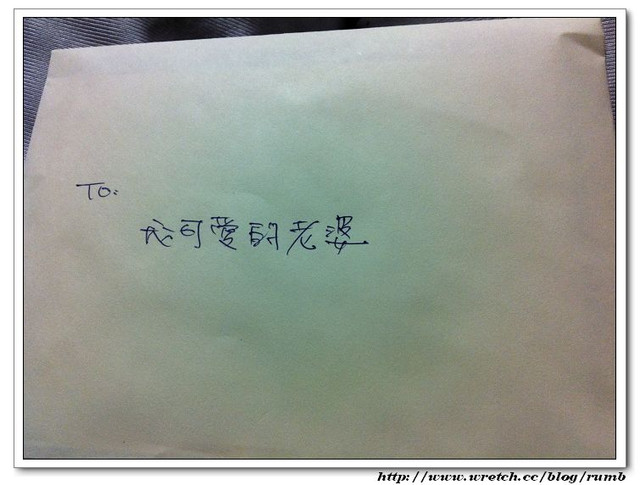 TO:
我可愛的老婆
http://www.wretch.cc/blog/rumb